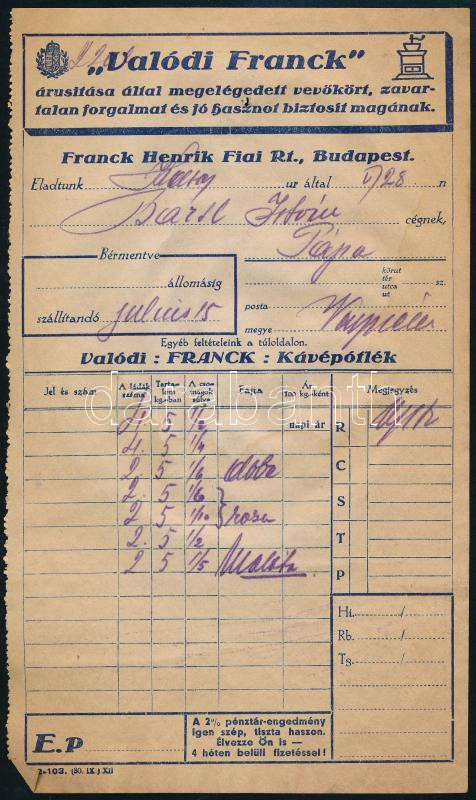 „Valódi Franck"
árusitása által megelégedett vevőkört, zavar-
talan forgalmat és jó hasznot biztosit magának.
Franck Henrik Fiai Rt., Budapest.
Eladtunk ur által V/28 n
István cégnek,
Pápa
Bérmentve
állomásig
szállitandó julius 15
körut
tér
utca
ut
sz.
posta
megye
Egyéb feltételeink a túloldalon.
Valódi : FRANCK : Kávépótlék
Jel és szám A ládák száma Tarta- lom kg.-ban A cso- magok súlya Fajta Ár 100 kg.-ként Megjegyzés
5 1/2 napi ár R
4. 5 1/4
2. 5 1/6 doba C
2. 5 1/6
2 5 1/10 rosa S
2. 5 1/2 T
2 5 1/5 Maláta P
Hi. /
Rb. /
Ts. /
E.p
A 2% pénztár-engedmény
igen szép, tiszta haszon.
Élvezze Ön is —
4 héten belüli fizetéssel!
2-103. (30. IX.) XII
darabanth